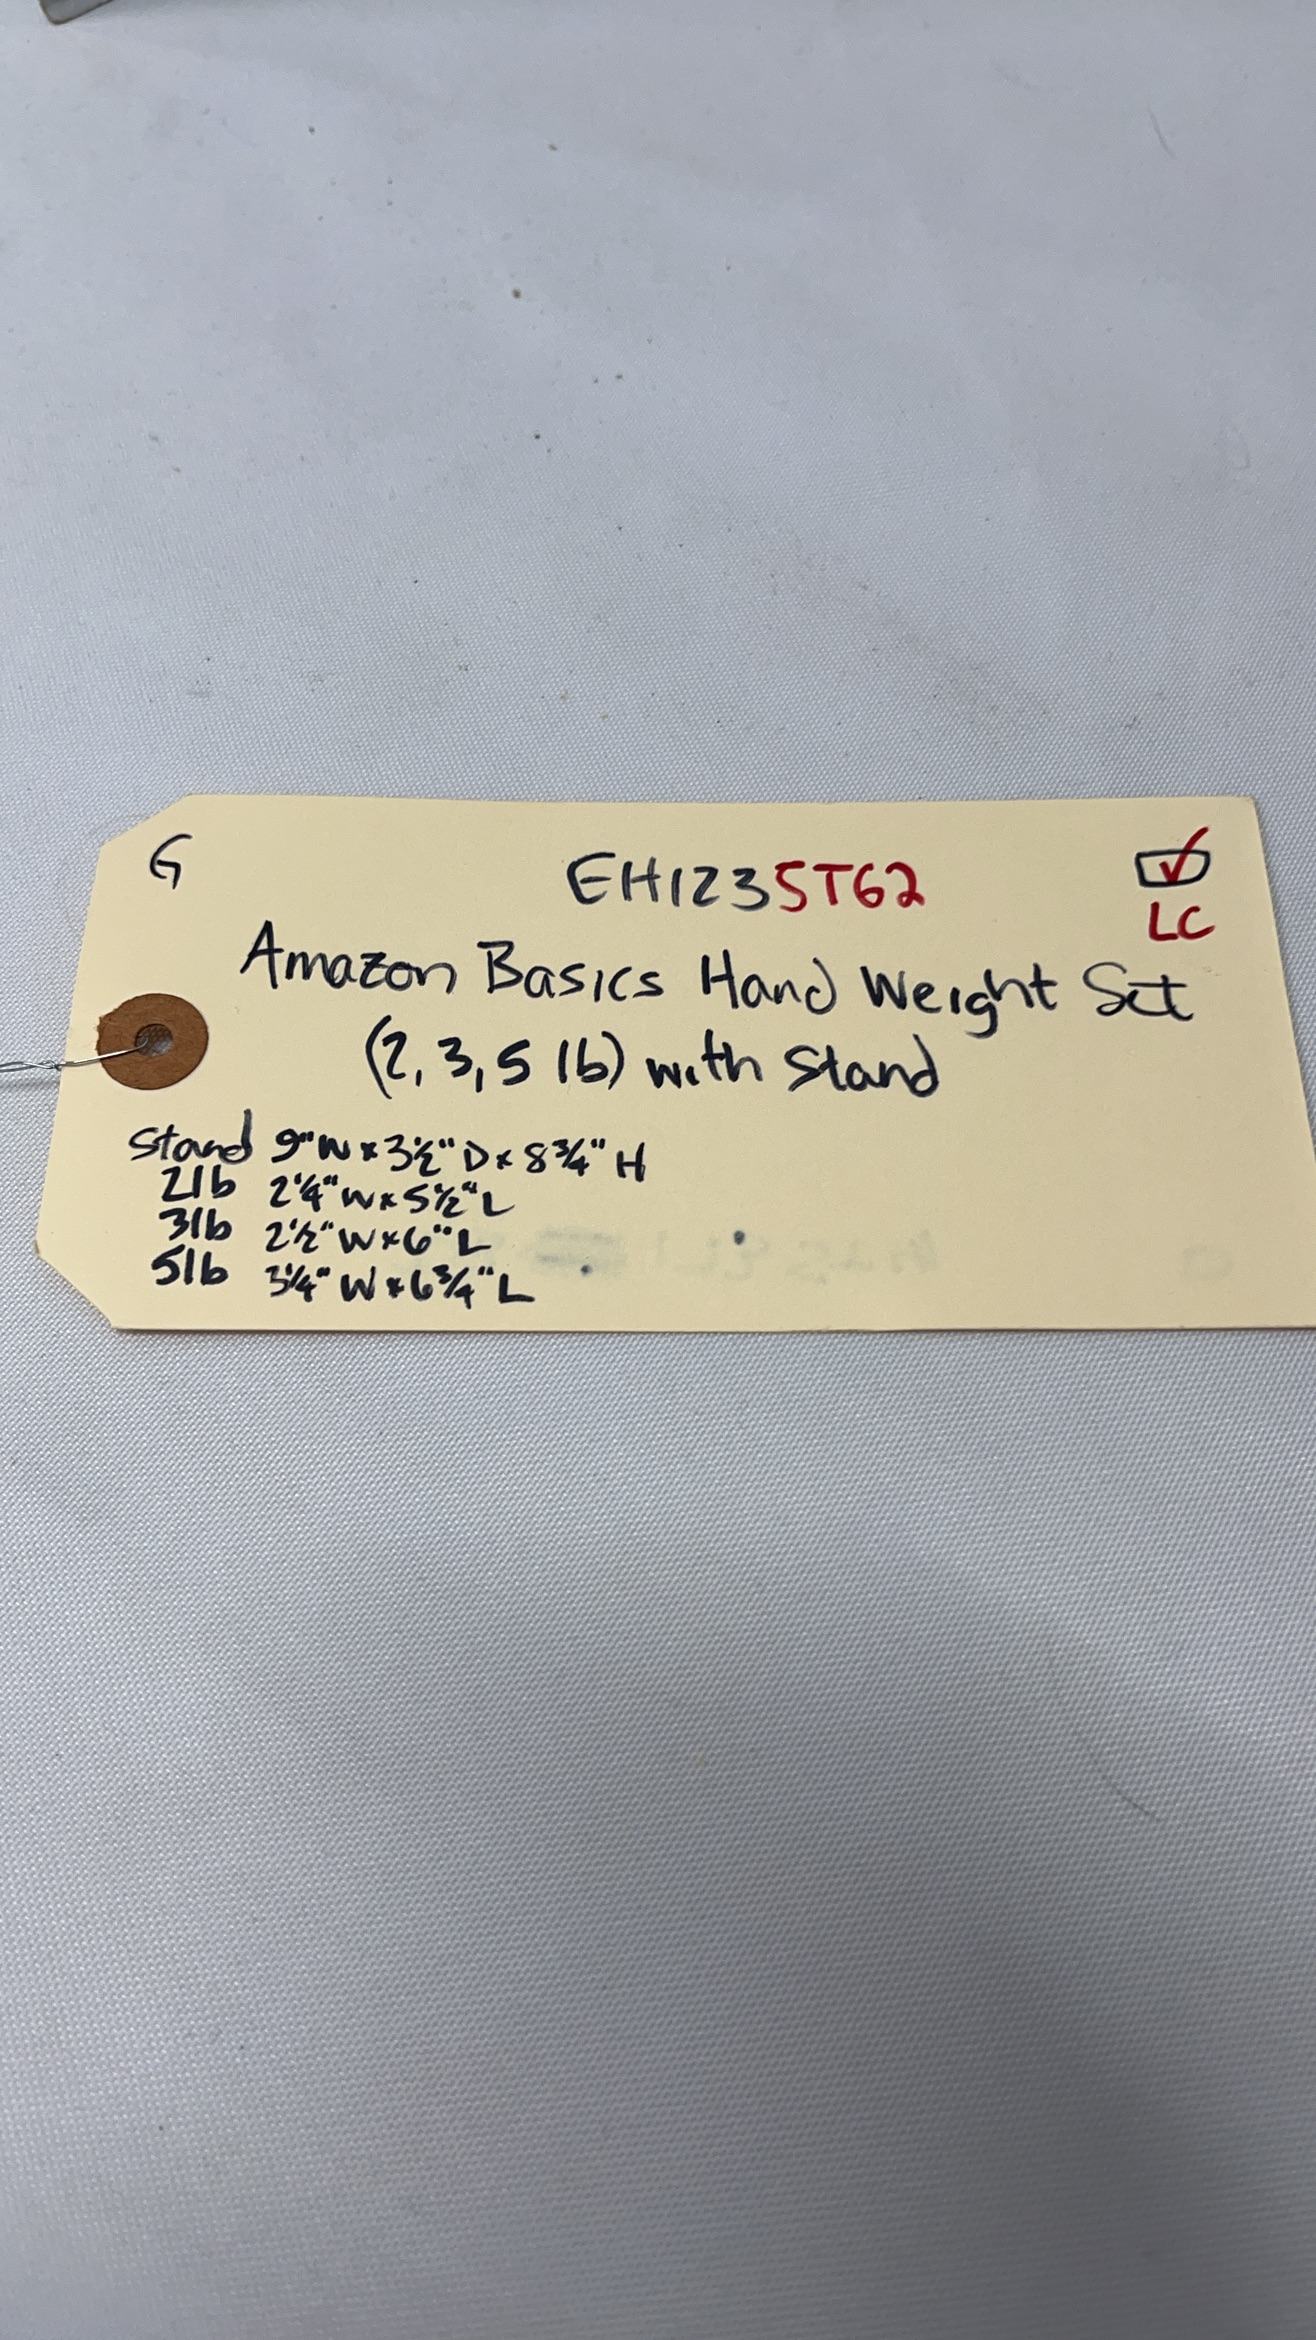 G
EH1235T62
LC
Amazon Basics Hand Weight Set
(2, 3, 5 lb) with Stand
Stand 9" W x 3 1/2" D x 8 3/4" H
2lb 2 1/4" W x 5 1/2" L
3lb 2 1/2" W x 6" L
5lb 3 1/4" W x 6 3/4" L